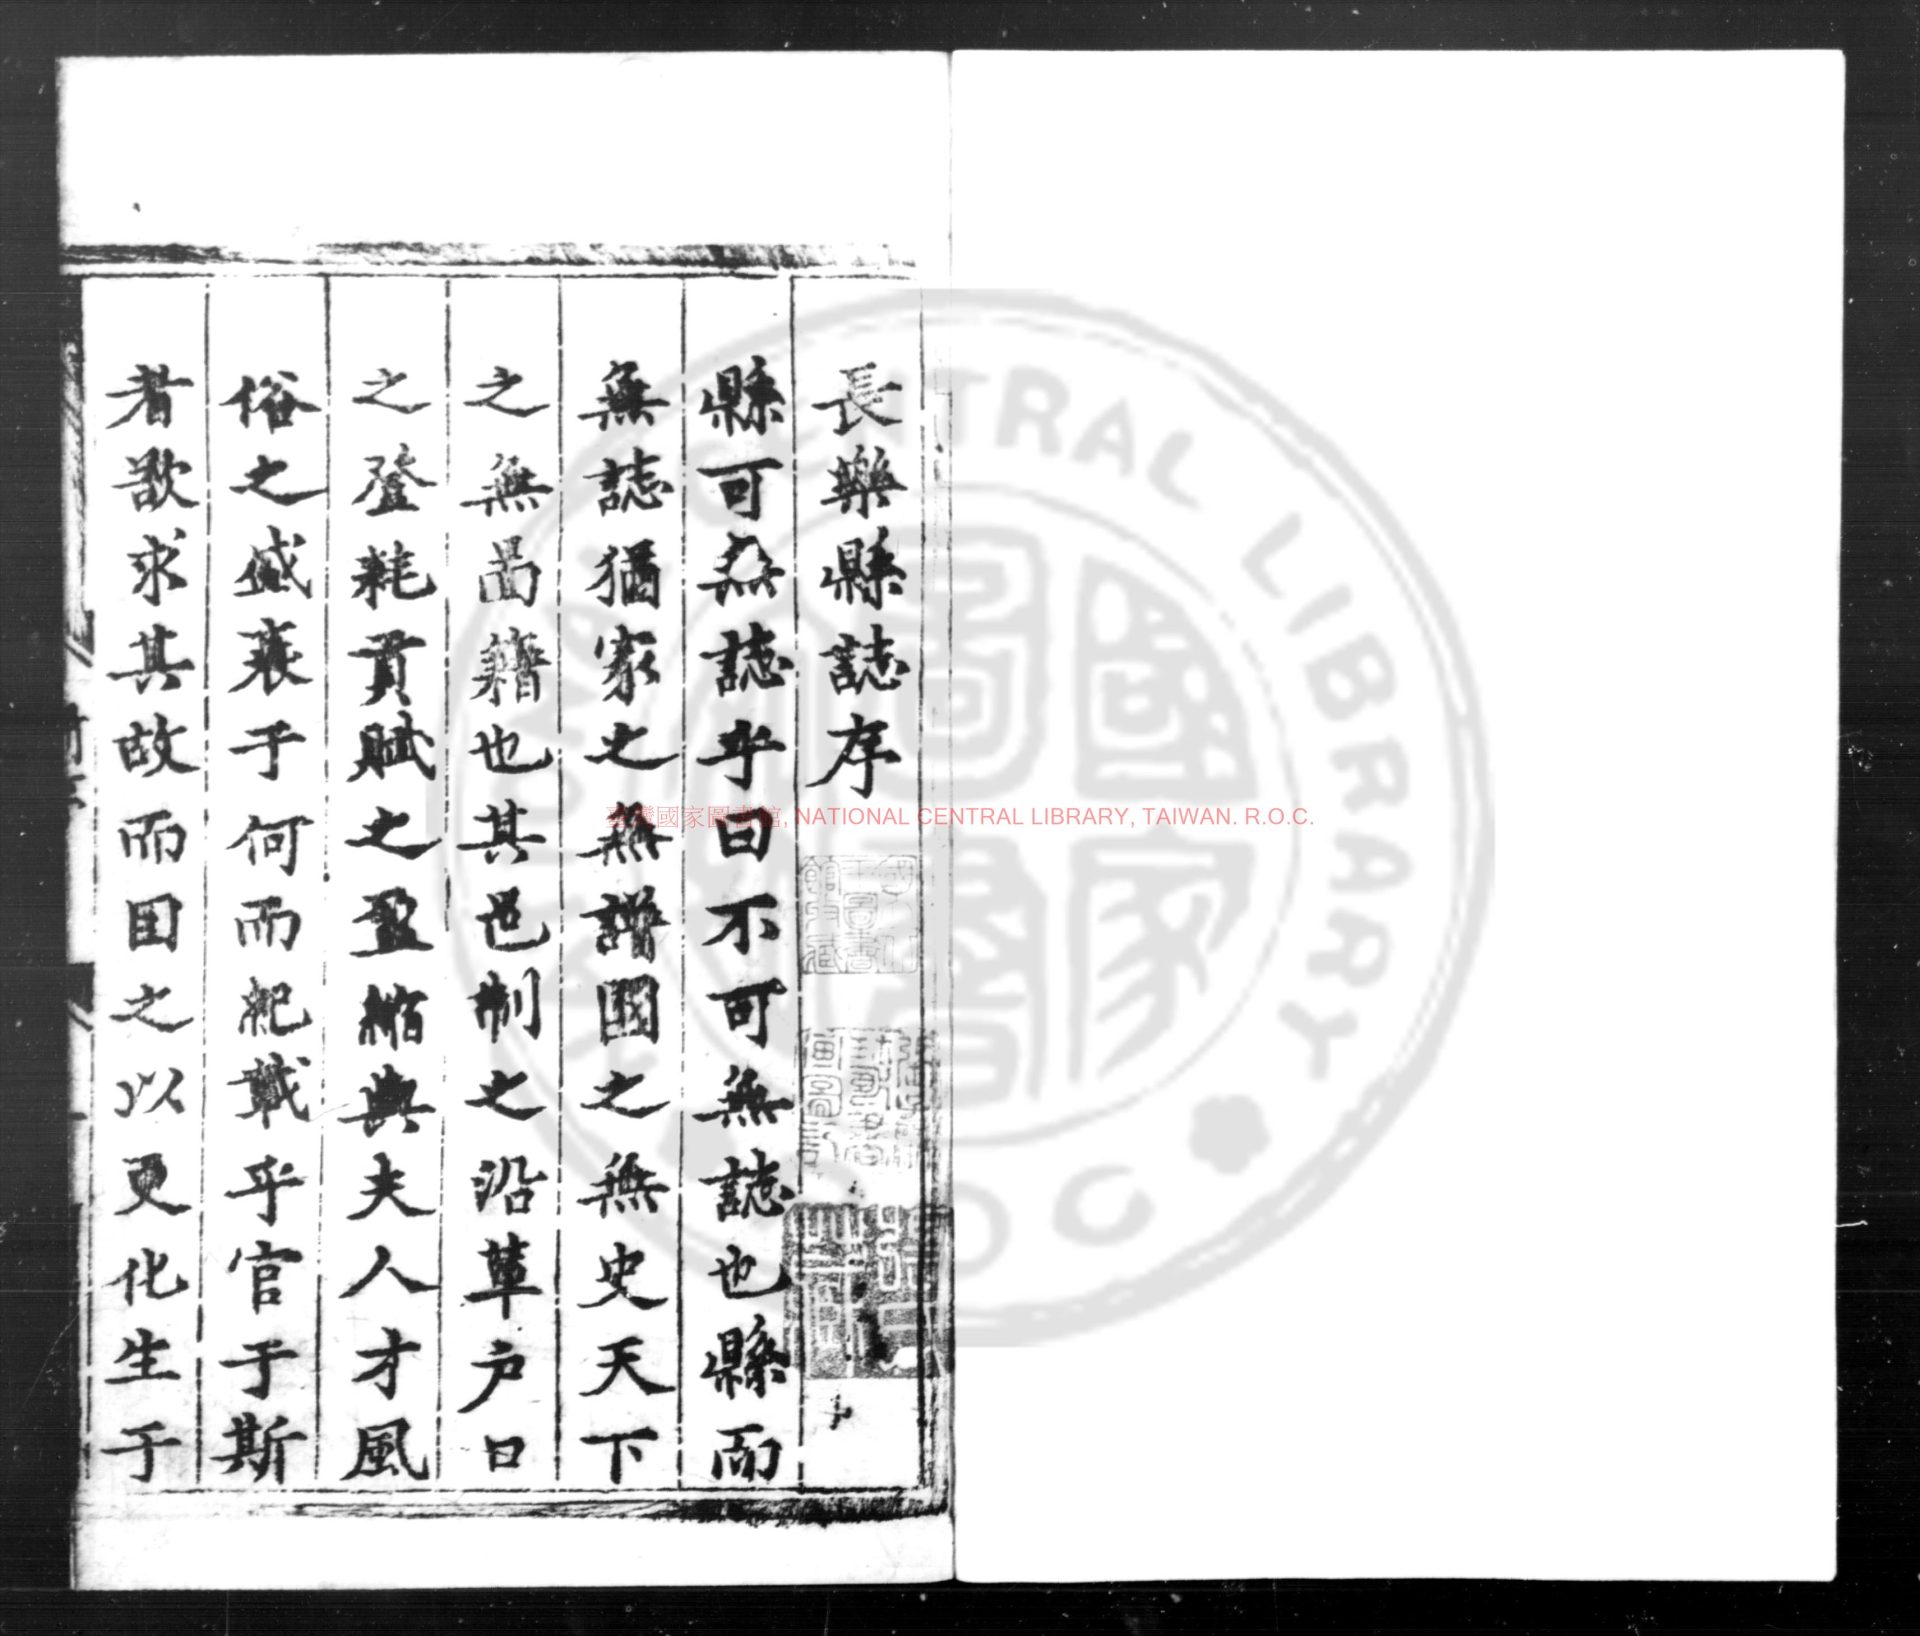 長樂縣誌序
縣可無誌乎曰不可無誌也縣而
無誌猶家之無譜國之無史天下
之無啚籍也其邑制之沿革户口
之登耗貢賦之盈縮與夫人才風
俗之盛衰于何而紀載乎官于斯
者欲求其故而因之以更化生于
臺灣國家圖書館, NATIONAL CENTRAL LIBRARY, TAIWAN. R.O.C.
NATIONAL CENTRAL LIBRARY
R.O.C.
國家
圖書